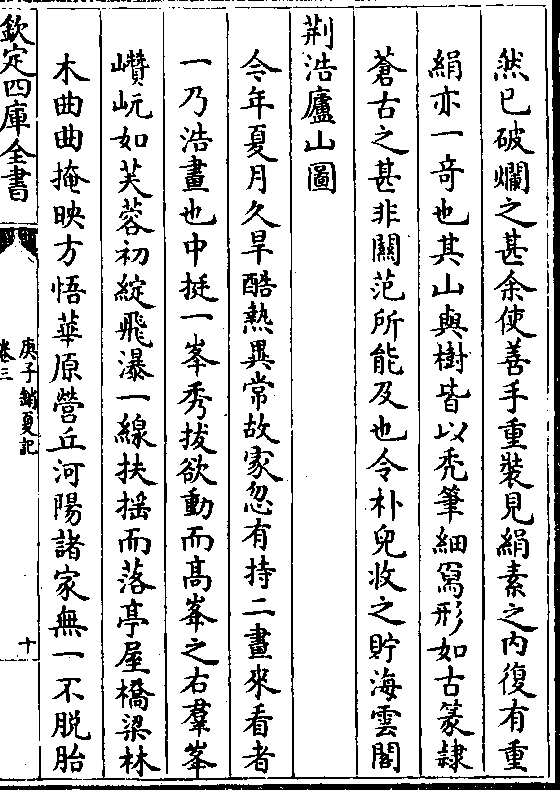 然已破爛之甚余使善手重裝見絹素之内復有重
絹亦一奇也其山與樹皆以秃筆細寫形如古篆隷
蒼古之甚非關范所能及也令朴兒收之貯海雲閣
荆浩廬山圖
今年夏月久旱酷熱異常故家忽有持二畫來看者
一乃浩畫也中挺一峯秀拔欲動而髙峯之右羣峯
巑岏如芙蓉初綻飛瀑一線扶揺而落亭屋橋梁林
木曲曲掩映方悟華原營丘河陽諸家無一不脱胎
欽定四庫全書
庚子銷夏記
卷三
十